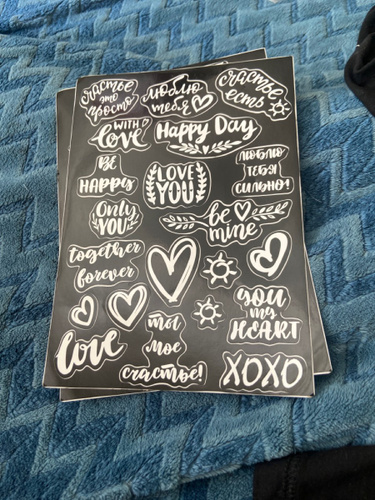 счастье
это
просто
люблю
тебя
счастье
есть
WITH
love
Happy Day
BE
HAPPY
LOVE
YOU
люблю
тебя
сильно!
Only
YOU
be
mine
together
forever
you
my
HEART
love
ты
мое
счастье!
XOXO